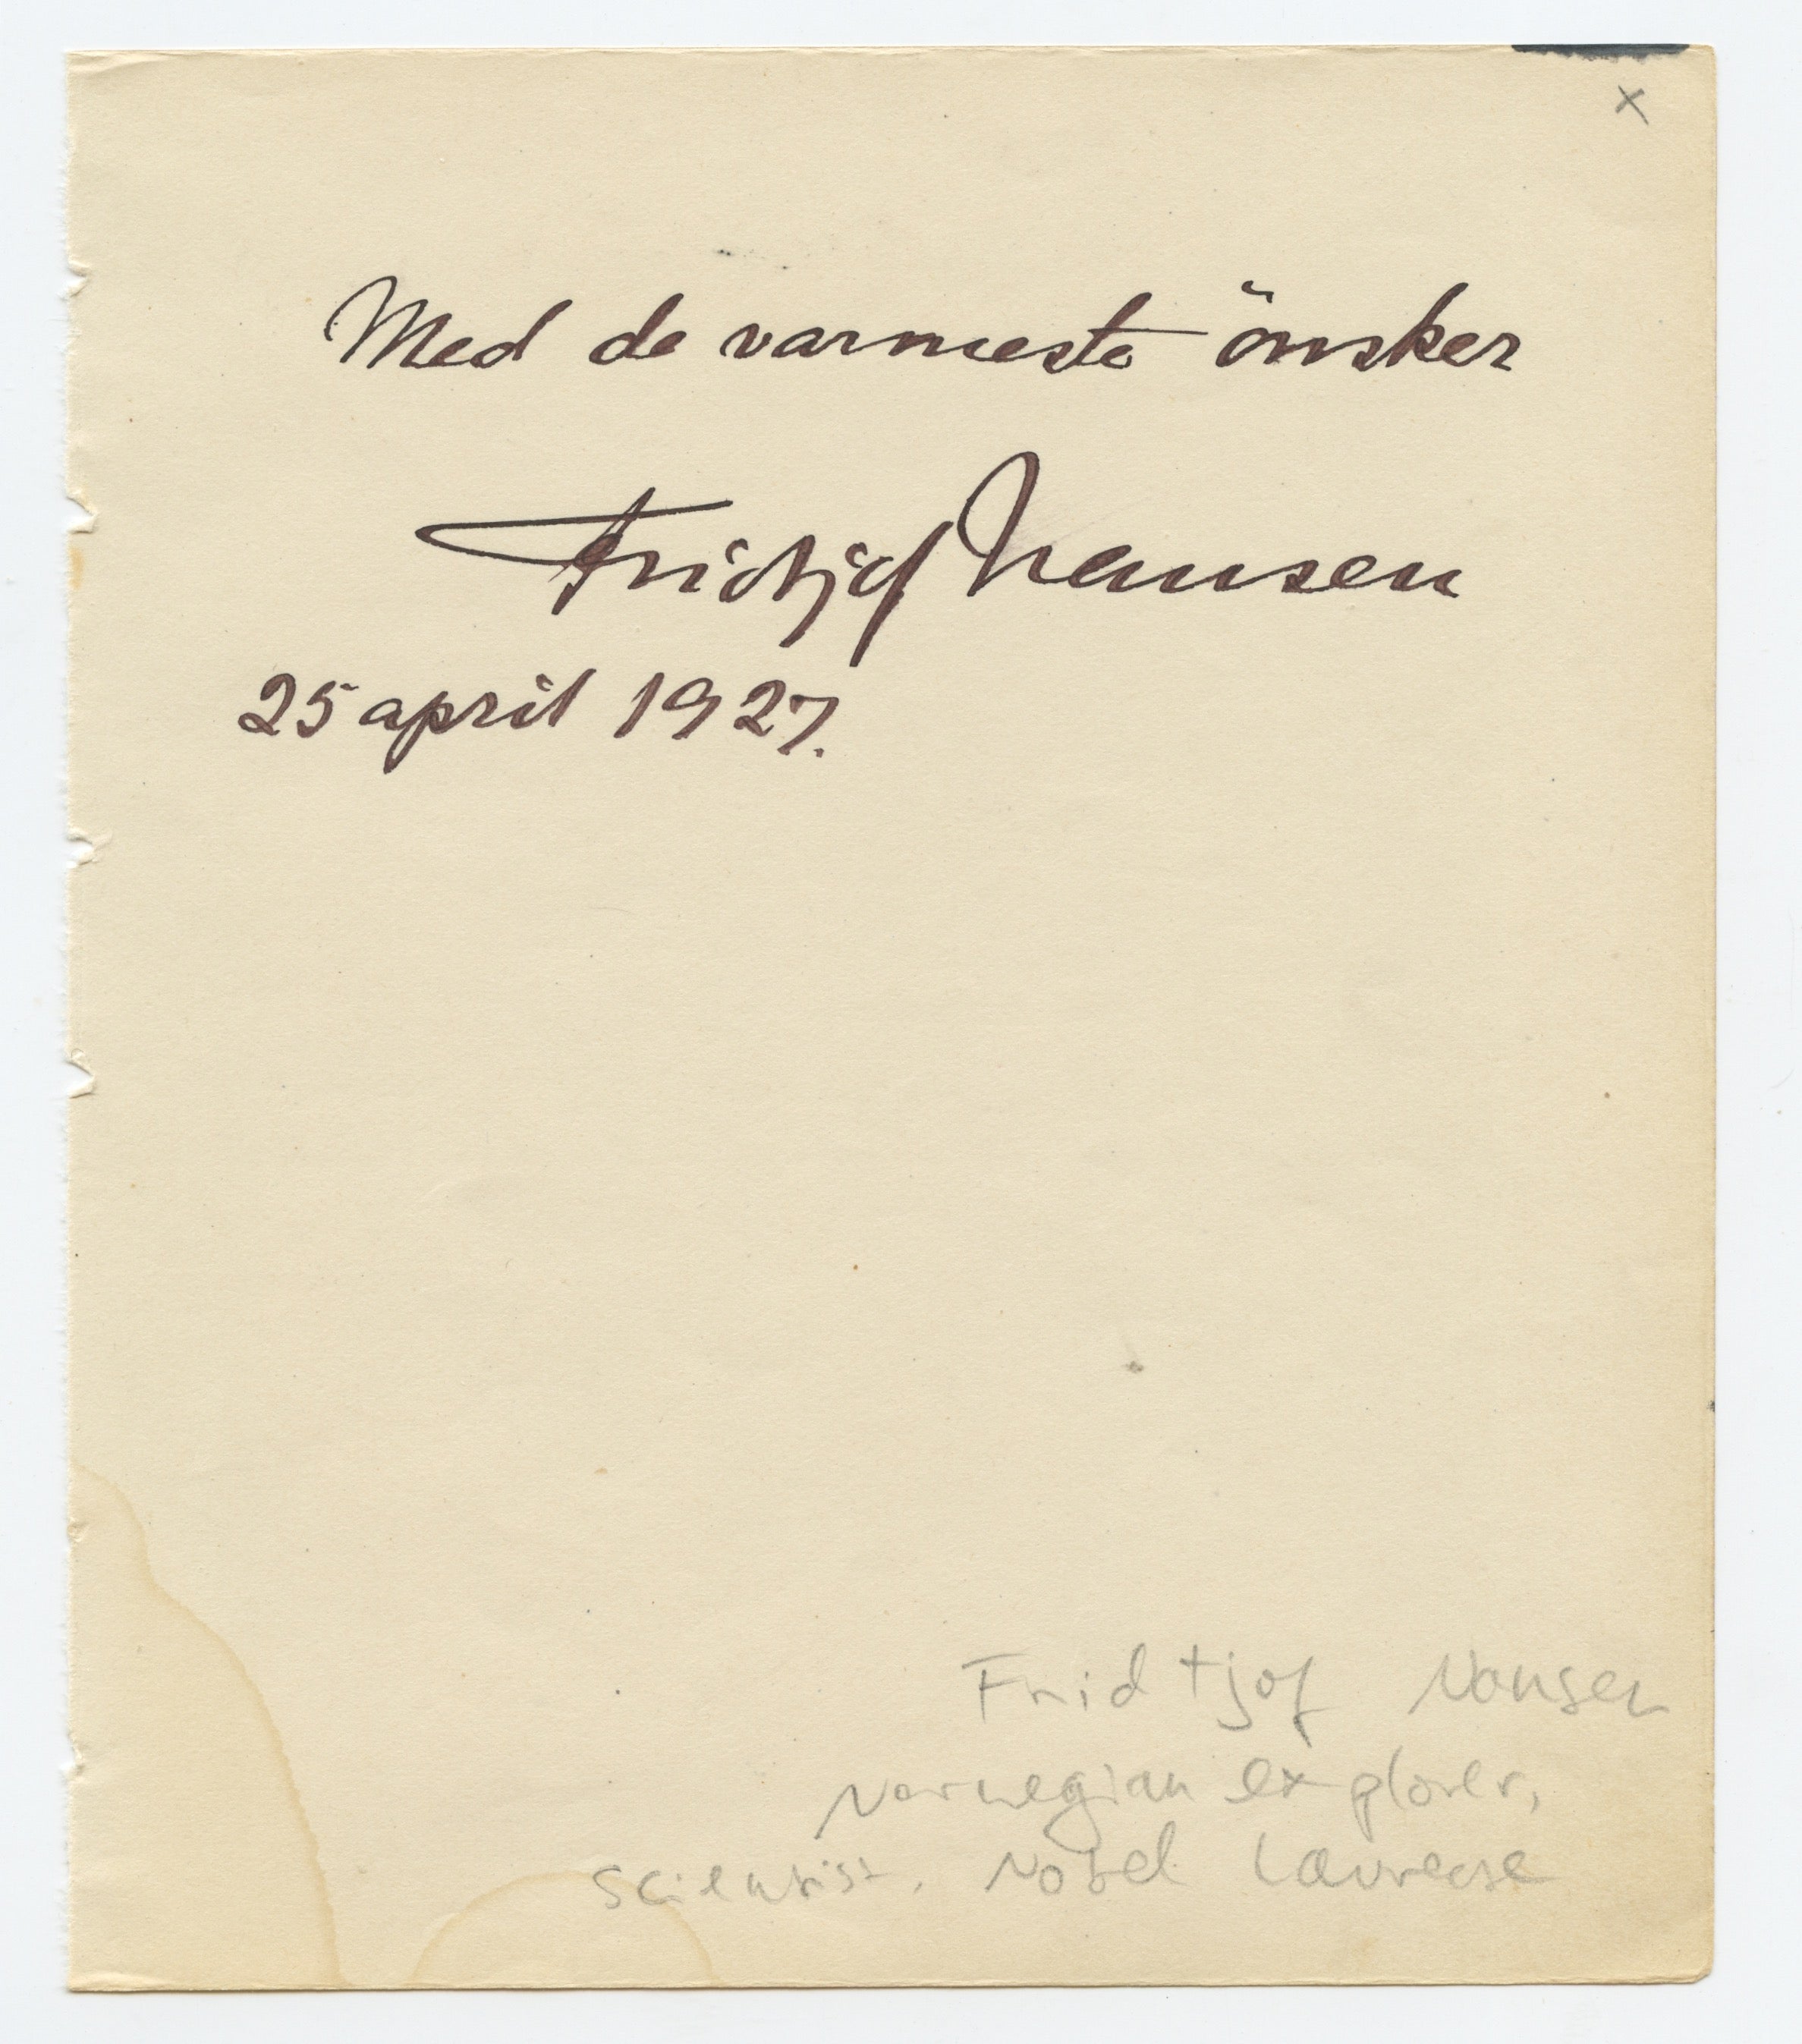 x
Med de varmeste önsker
Fridtjof Nansen
25 april 1927.
Fridtjof Nansen
Norwegian explorer,
scientist, Nobel Laurease